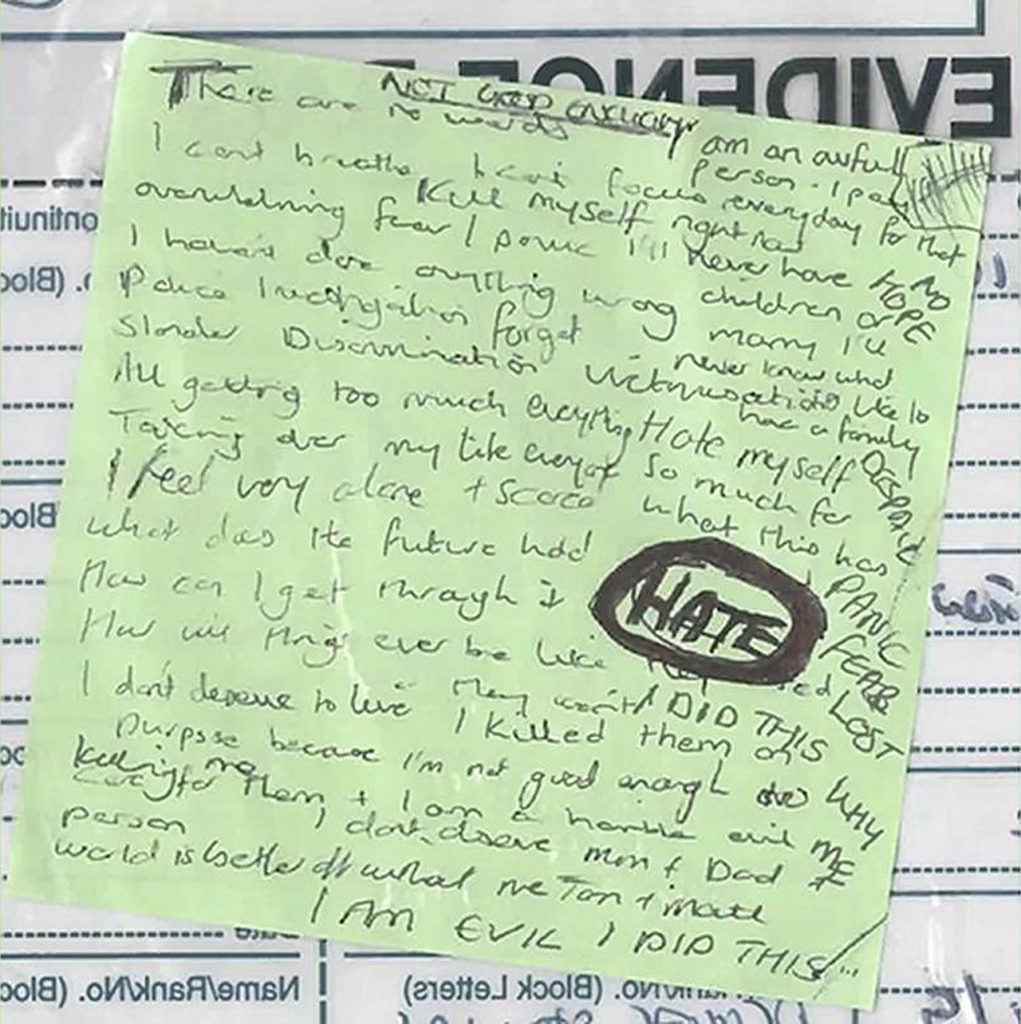 There are no words
NOT GOOD ENOUGH
I am an awful
person. I pay
everyday for that
I cant breathe I cant focus
Kill myself right now
overwhelming fear / panic
I'll never have
children or
marry I'll
never know what
like to
have a family
NO
HOPE
I haven't done anything wrong
Police Investigation forget
Slander Discrimination Victimisation
All getting too much everything
Hate myself
so much for
what this has
DESPAIR
Taking over my life
I feel very alone + scared
What does the future hold
How can I get through it
HATE
PANIC
FEAR
LOST
How will things ever be like
I don't deserve to live
They won't
I DID THIS
WHY
ME
I killed them on
purpose because I'm not good enough to
care for them + I am a horrible evil
person
killing me
I don't deserve Mum + Dad
world is better off without me
I AM EVIL I DID THIS
EVIDENCE
Continuit
No. (Block
Block
Date
Name/Rank/No. (Block Letters)